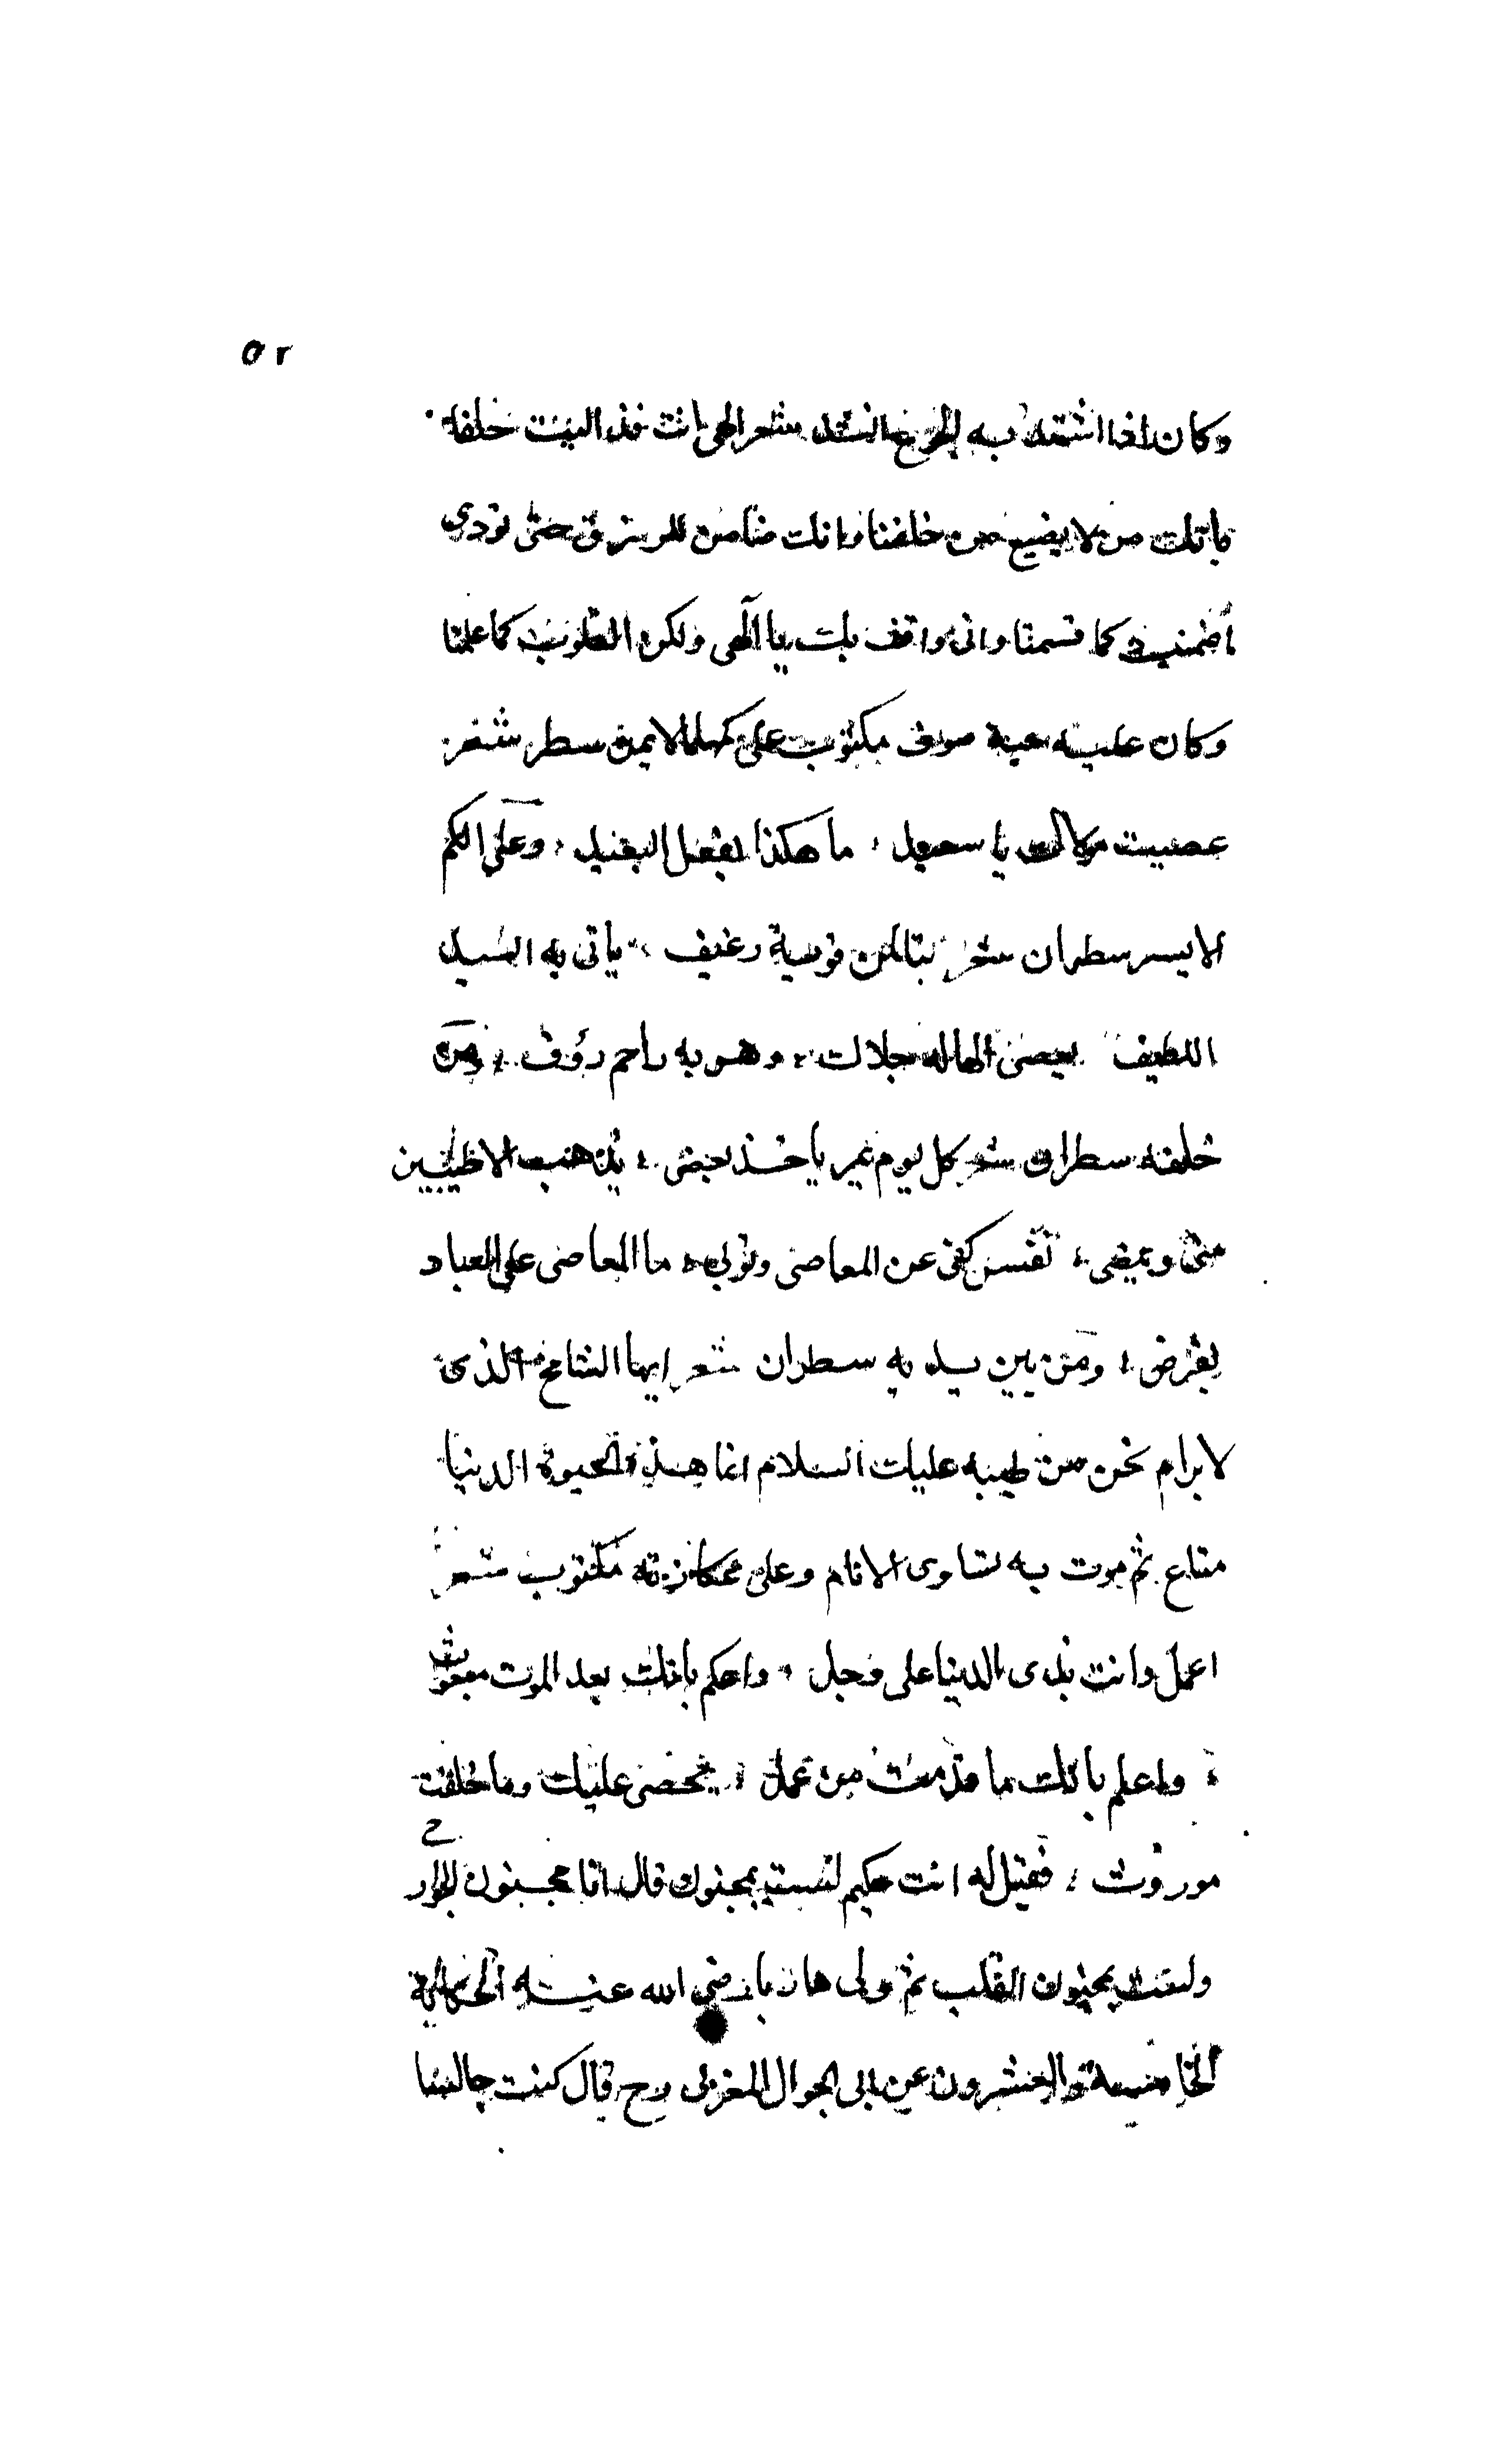 ٥٢
وكان اذا اشتد به الجوع انشد شعر الهي انت قد اليت حلفا
بانك من لا يضيع من خلقتا وانك ضامن للرزق حتى تودي
كما قسمتا واني واثق بك يا الهي ولكن القلوب كما علمتا
وكان عليه جبة صوف مكتوب على كمها الايمن سطر شعر
عصيت مولاك يا سعيد ما هكذا يفعل العبيد وعلى الكم
الايسر سطران شعر قوته رغيف ياتى به السيد
اللطيف يعصى الها له جلالت وهو به راحم رؤف ومن
خلفه سطران شعر كل يوم يمر ياخذ بعضى يذهب الاطيبين
منى ويمضى نفس كفى عن المعاصى وتوبى ما المعاصى على العباد
بفرض ومن بين يديه سطران شعر ايها الشامخ الذى
لا يرام نحن من طينه عليك السلام انما هذه الحيوة الدنيا
متاع ثم موت به تساوى الانام وعلى عكازته مكتوب شعر
اعمل وانت بذى الدنيا على وجل واعلم بانك بعد الموت مبعوث
واعلم بانك ما قدمت من عمل يحصى عليك وما خلفت
موروث فقيل له انت حكيم لست بمجنون قال انا مجنون الجوارح
ولست بمجنون القلب ثم ولى هاربا رضي الله عنه الحكاية
الخامسة والعشرون عن ابى الجوال المغربى رح قال كنت جالسا